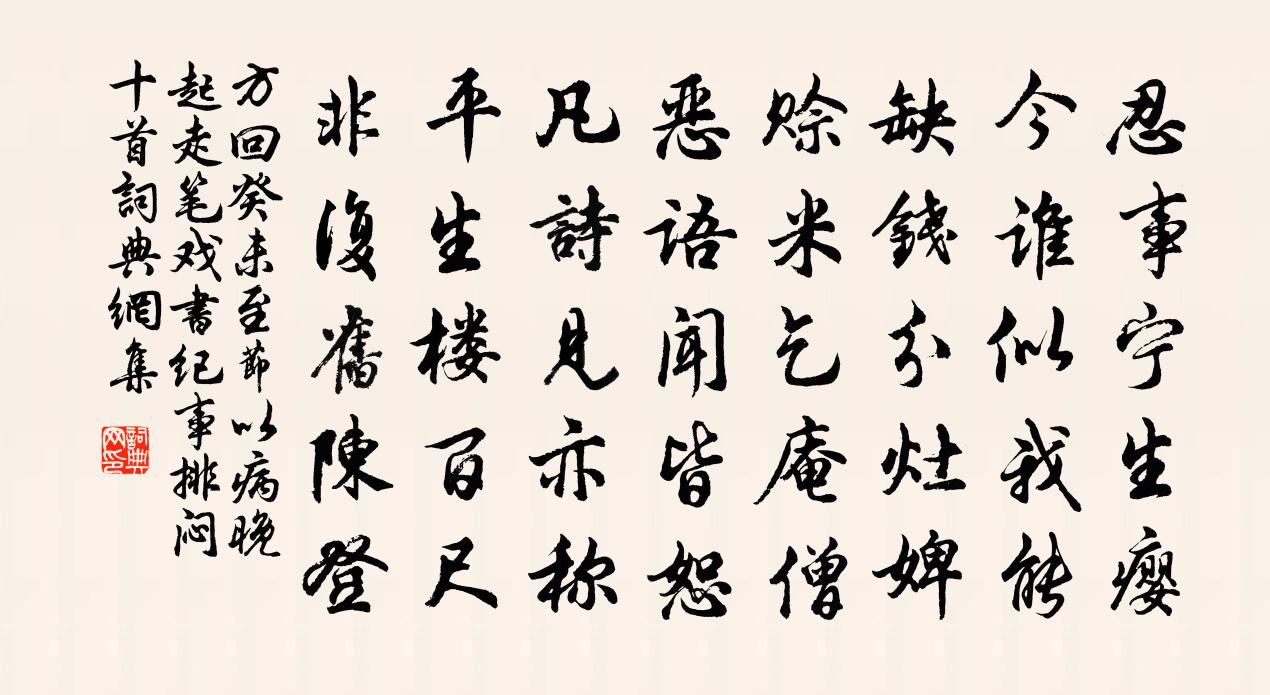 忍事宁生瘿
今谁似我能
缺錢分灶婢
赊米乞庵僧
恶语闻皆恕
凡詩見亦称
平生楼百尺
非復舊陳登
方回癸未至節以病晚
起走笔戏書纪事排闷
十首詞典網集
詞典
网印